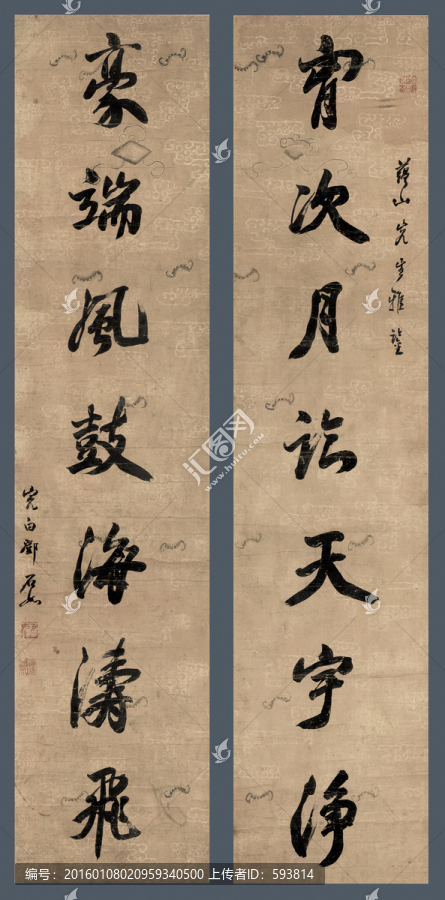 胷次月临天宇淨
山先生雅鑒
豪端風鼓海濤飛
完白鄧石如
汇图网
www.huitu.com
编号：20160108020959340500 上传者ID：593814